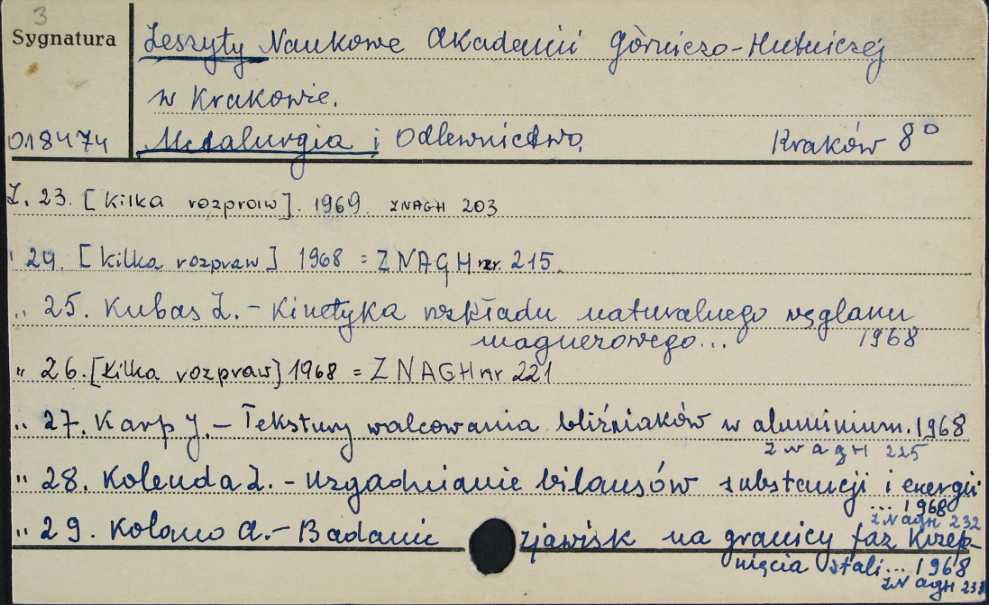 3
Sygnatura
Zeszyty Naukowe Akademii Górniczo-Hutniczej
w Krakowie.
018474
Metalurgia i Odlewnictwo. Kraków 8°
Z. 23. [Kilka rozpraw]. 1969. ZNAGH 203
" 24. [Kilka rozpraw] 1968 = ZNAGH nr. 215.
" 25. Kubas Z. - Kinetyka rozkładu naturalnego węglanu
magnezowego... 1968
" 26. [Kilka rozpraw] 1968 = ZNAGH nr 221
" 27. Karp J. - Tekstury walcowania bliźniaków w aluminium. 1968
ZNAGH 225
" 28. Kolenda Z. - Uzgadnianie bilansów substancji i energii
... 1968
ZNAGH 232
" 29. Kolano A. - Badanie zjawisk na granicy faz krzep-
nięcia stali... 1968
ZNAGH